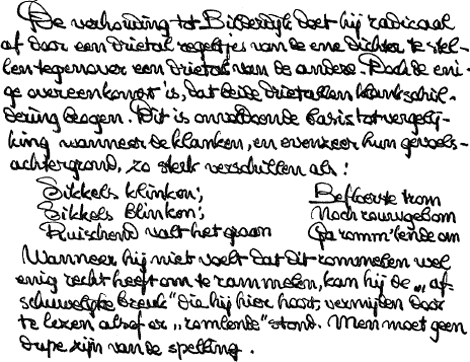 De verhouding tot Bilderdijk doet hij radicaal
af door een drietal regeltjes van de ene dichter te stel-
len tegenover een drietal van de andere. Doch de eni-
ge overeenkomst is, dat beide drietallen klankschil-
dering beogen. Dit is onvoldoende basis tot vergelij-
king wanneer de klanken, en evenzeer hun gevoels-
achtergrond, zo sterk verschillen als:
Sikkels klinken;
Sikkels blinken;
Ruischend valt het graan
Befloerste trom
Noch rouwgebom
Ga romm'lende om
Wanneer hij niet voelt dat dit rommelen wel
enig recht heeft om te rammelen, kan hij de „af-
schuwelijke breuk” die hij hier hoort, vermijden door
te lezen alsof er „romlende” stond. Men moet geen
dupe zijn van de spelling.